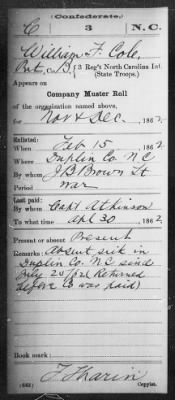 (Confederate.)
C 3 N.C.
William F. Cole,
Pvt, Co. B, 3 Reg't North Carolina Inf.
(State Troops.)
Appears on
Company Muster Roll
of the organization named above,
for Nov & Dec, 1862.
Enlisted:
When Feb 15, 1862.
Where Duplin Co NC
By whom J B Brown Lt
Period war
Last paid:
By whom Capt Atkinson
To what time Apl 30, 1862.
Present or absent Present
Remarks: Absent sick in
Duplin Co. NC since
July 20/62 (Returned
before Co was paid)
Book mark:
(642)
F Tharin
Copyist.